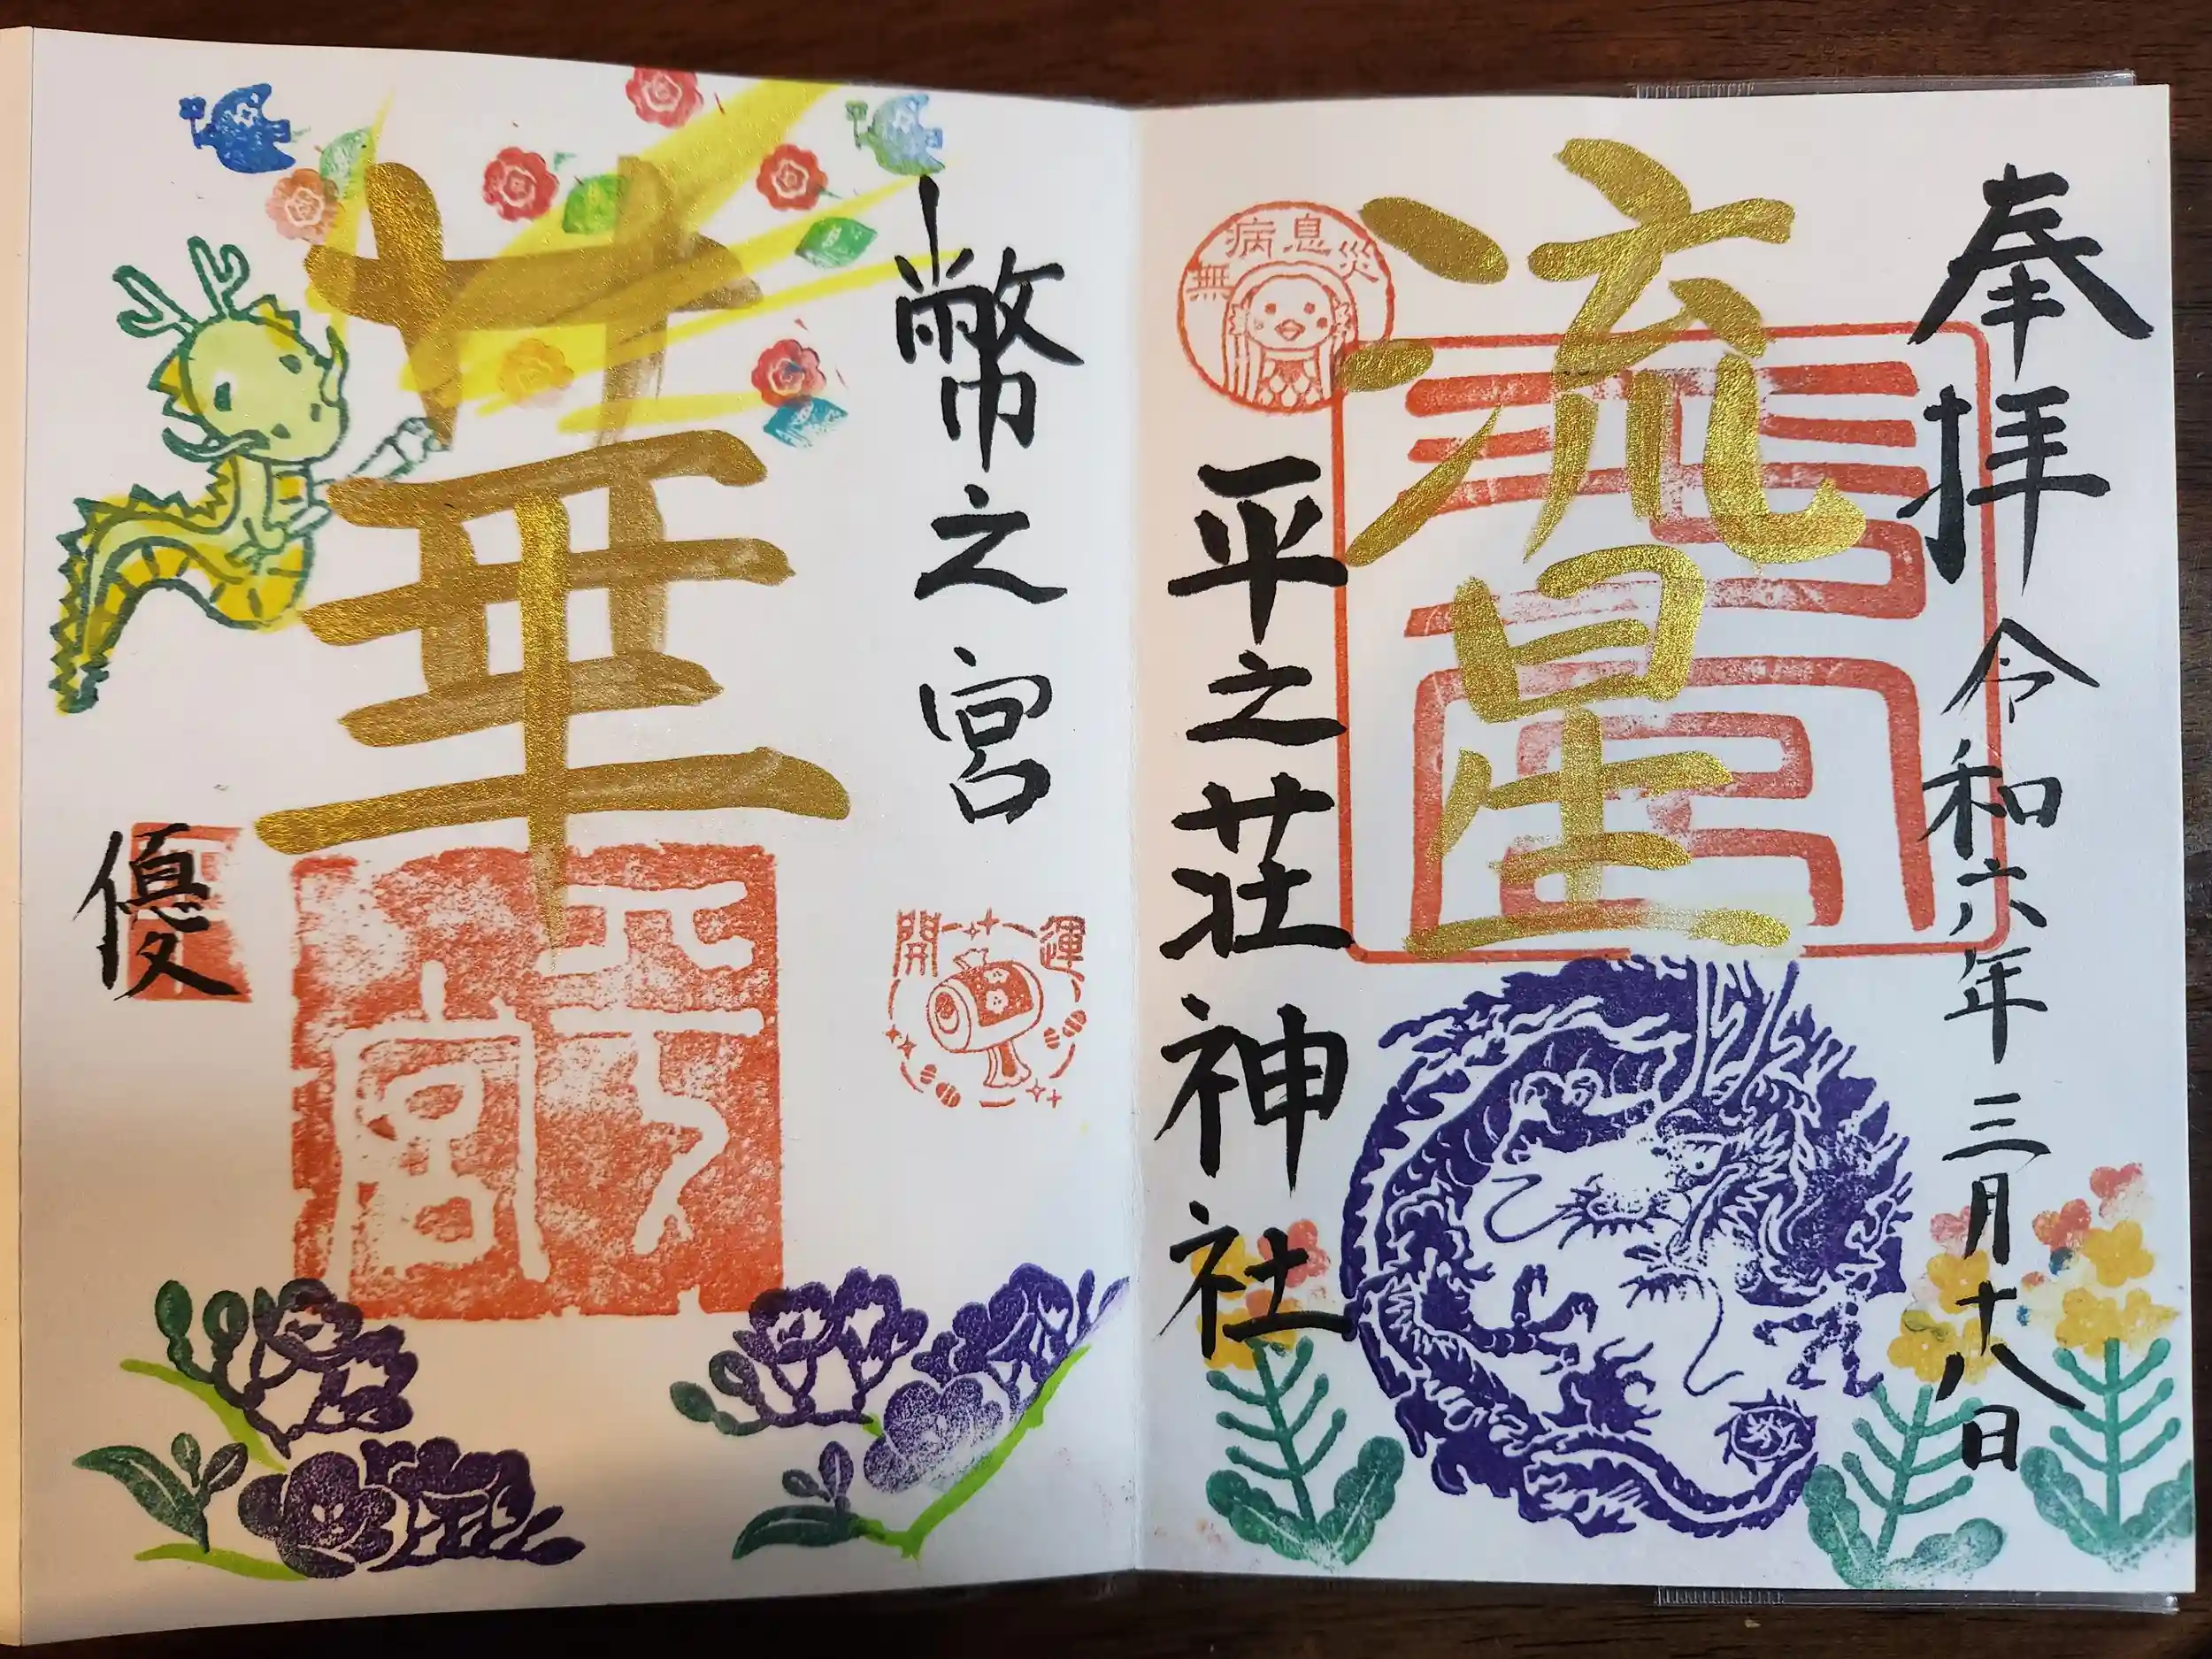 奉拝
令和六年三月十八日
流星
無病息災
平之荘神社
幣之宮
開運
華
優